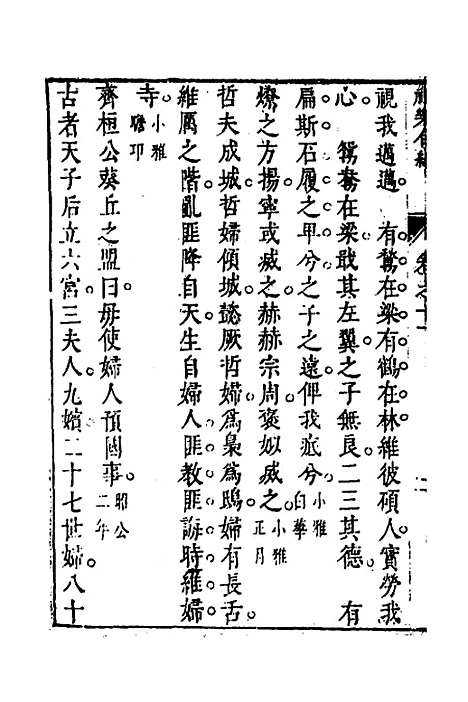 禮樂合編 卷之十一
視我邁邁。有鶖在梁。有鶴在林。維彼碩人。實勞我
心　鴛鴦在梁。戢其左翼。之子無良。二三其德　有
扁斯石。履之卑兮。之子之遠。俾我疧兮。小雅白華
燎之方揚。寧或滅之。赫赫宗周。褒姒烕之。小雅正月
哲夫成城。哲婦傾城。懿厥哲婦。為梟為鴟。婦有長舌。
維厲之階。亂匪降自天。生自婦人。匪教匪誨。時維婦
寺。小雅瞻卬
齊桓公葵丘之盟曰毋使婦人預國事。昭公二年
古者天子后立六宮。三夫人九嬪二十七世婦。八十